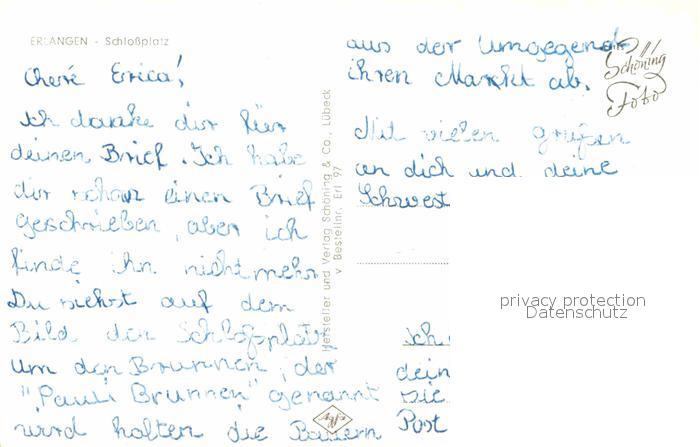 ERLANGEN - Schloßplatz
Cheré Errica!
Ich danke dir für
deinen Brief. Ich habe
dir schon einen Brief
geschrieben, aber ich
finde ihn nicht mehr
Du siehst auf dem
Bild den Schloßplatz
um den Brunnen, der
"Pauli Brunnen" genannt
wird halten die Bauern
aus der Umgegend
ihren Markt ab.
Mit vielen grüßen
an dich und deine
Schwest
Ich
dein
sie
Post
Hersteller und Verlag Schöning & Co., Lübeck
v Bestellnr. Erl 97
Schöning
Foto
Agfa
privacy protection
Datenschutz